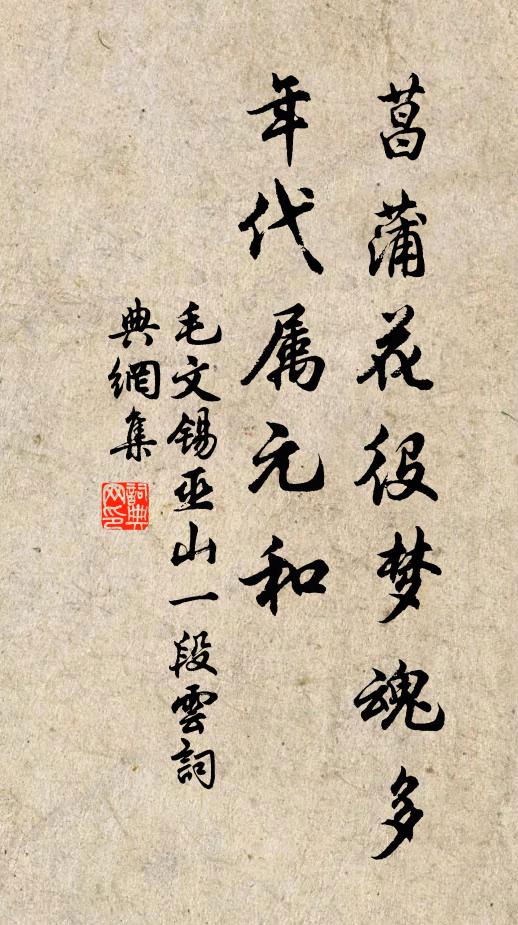 菖蒲花役梦魂多
年代属元和
毛文锡巫山一段雲詞
典網集
詞典网印